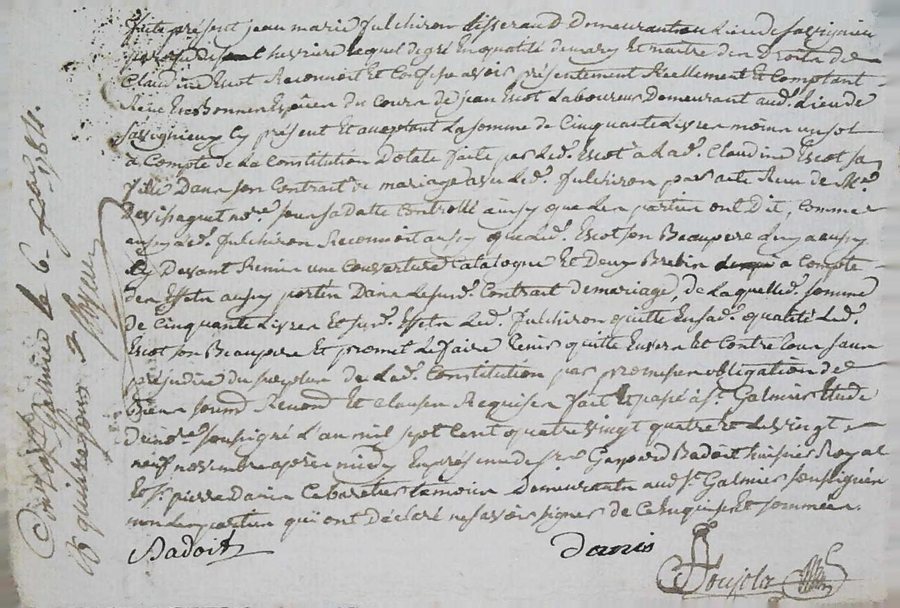 fute présent jean marie fulchiron tisserand demeurant au Lieu de savignieu
parroisse de st hevrire Lequel de gré En qualité de mary et maitre des Droits de
Claudine Escot Reconnoit Et Confesse avois présentement Réellement Et Comptant
Reçeu En Bonnes Espèces du Cours de jean Escot Laboureur Demeurant aud. Lieu de
savignieux Cy présent Et aceptant La somme de Cinquante Livres moins un sol
a Compte de La Constitution Dotale faite par Led. Escot a Lad. Claudine Escot sa
fille Dans son Contrait de mariage avec Led. fulchiron par acte Reçu de Me.
Devissaguet nore. sous sa datte Controllé ainsy que Les parties ont Dit, Comme
aussy Led. fulchiron Reconnoit aussy que Led. Escot son Beaupere Luy a aussy
Cy Devant Remis une Couverture Catalogne Et Deux Brebis a Compte
des Effets aussy portés Dans Le susd. Contrait de mariage, de Laquelle d. somme
de Cinquante Livres Et susd. Effets Led. fulchiron quitte En sad. qualité Led.
Escot son Beaupere Et promet Le faire tenir quitte Envers Et Contre tous sans
préjudice du surplus de Lad. Constitution par promesses obligation de
biens soumd. Renond. Et Clauses Requises fait Et passé a St. Galmier Etude
Du nore. soussigné L'an mil sept Cent quatre vingt quatre Et Le vingt
neuf novembre après midy En présence de sr. Gaspard Badoit huissier Royal
Et sr. pierre Danis Cabaretier temoins Demeurants aud. St. Galmier soussignés
non Les parties qui ont Déclaré ne savoir signer de Ce Enquises Et sommées.
Badoit Danis
Poujola
St Galmier le 6. 1784.
quinze sous